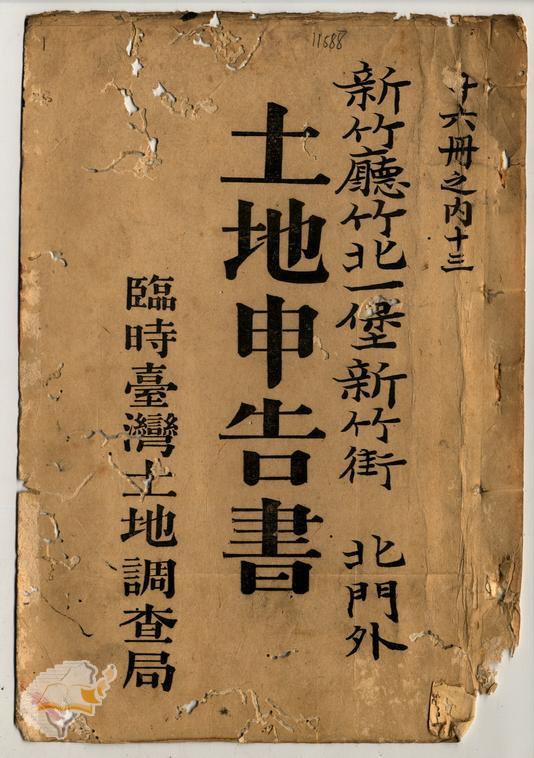 11688
十六冊之內十三
新竹廳竹北一堡新竹街 北門外
土地申告書
臨時臺灣土地調查局